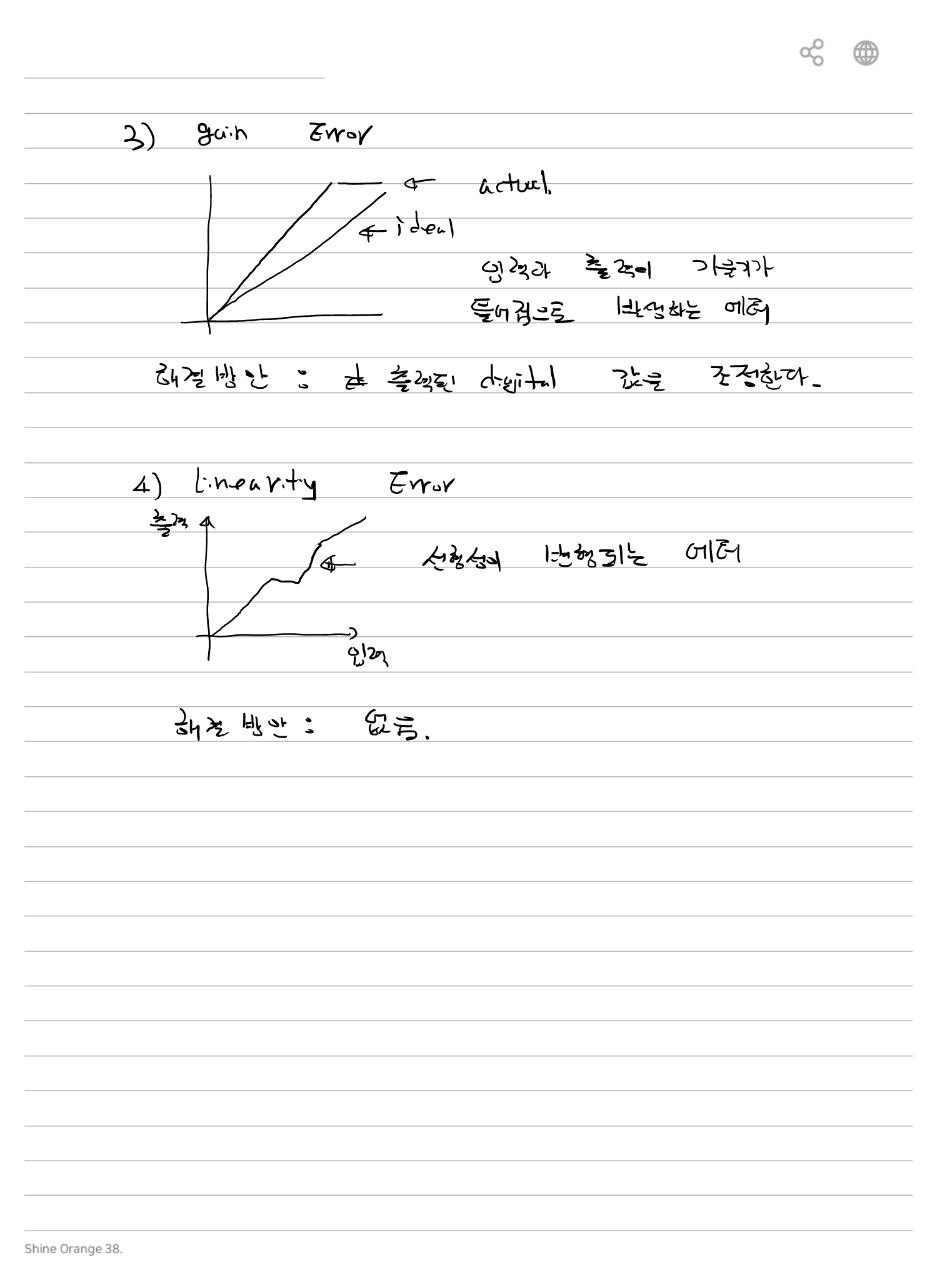 3) gain Error
actual.
ideal
입력과 출력이 기울기가
틀어짐으로 발생하는 에러
해결방안 : 출력된 digital 값을 조정한다.
4) Linearity Error
출력
선형성이 변형되는 에러
입력
해결 방안 : 없음.
Shine Orange 38.